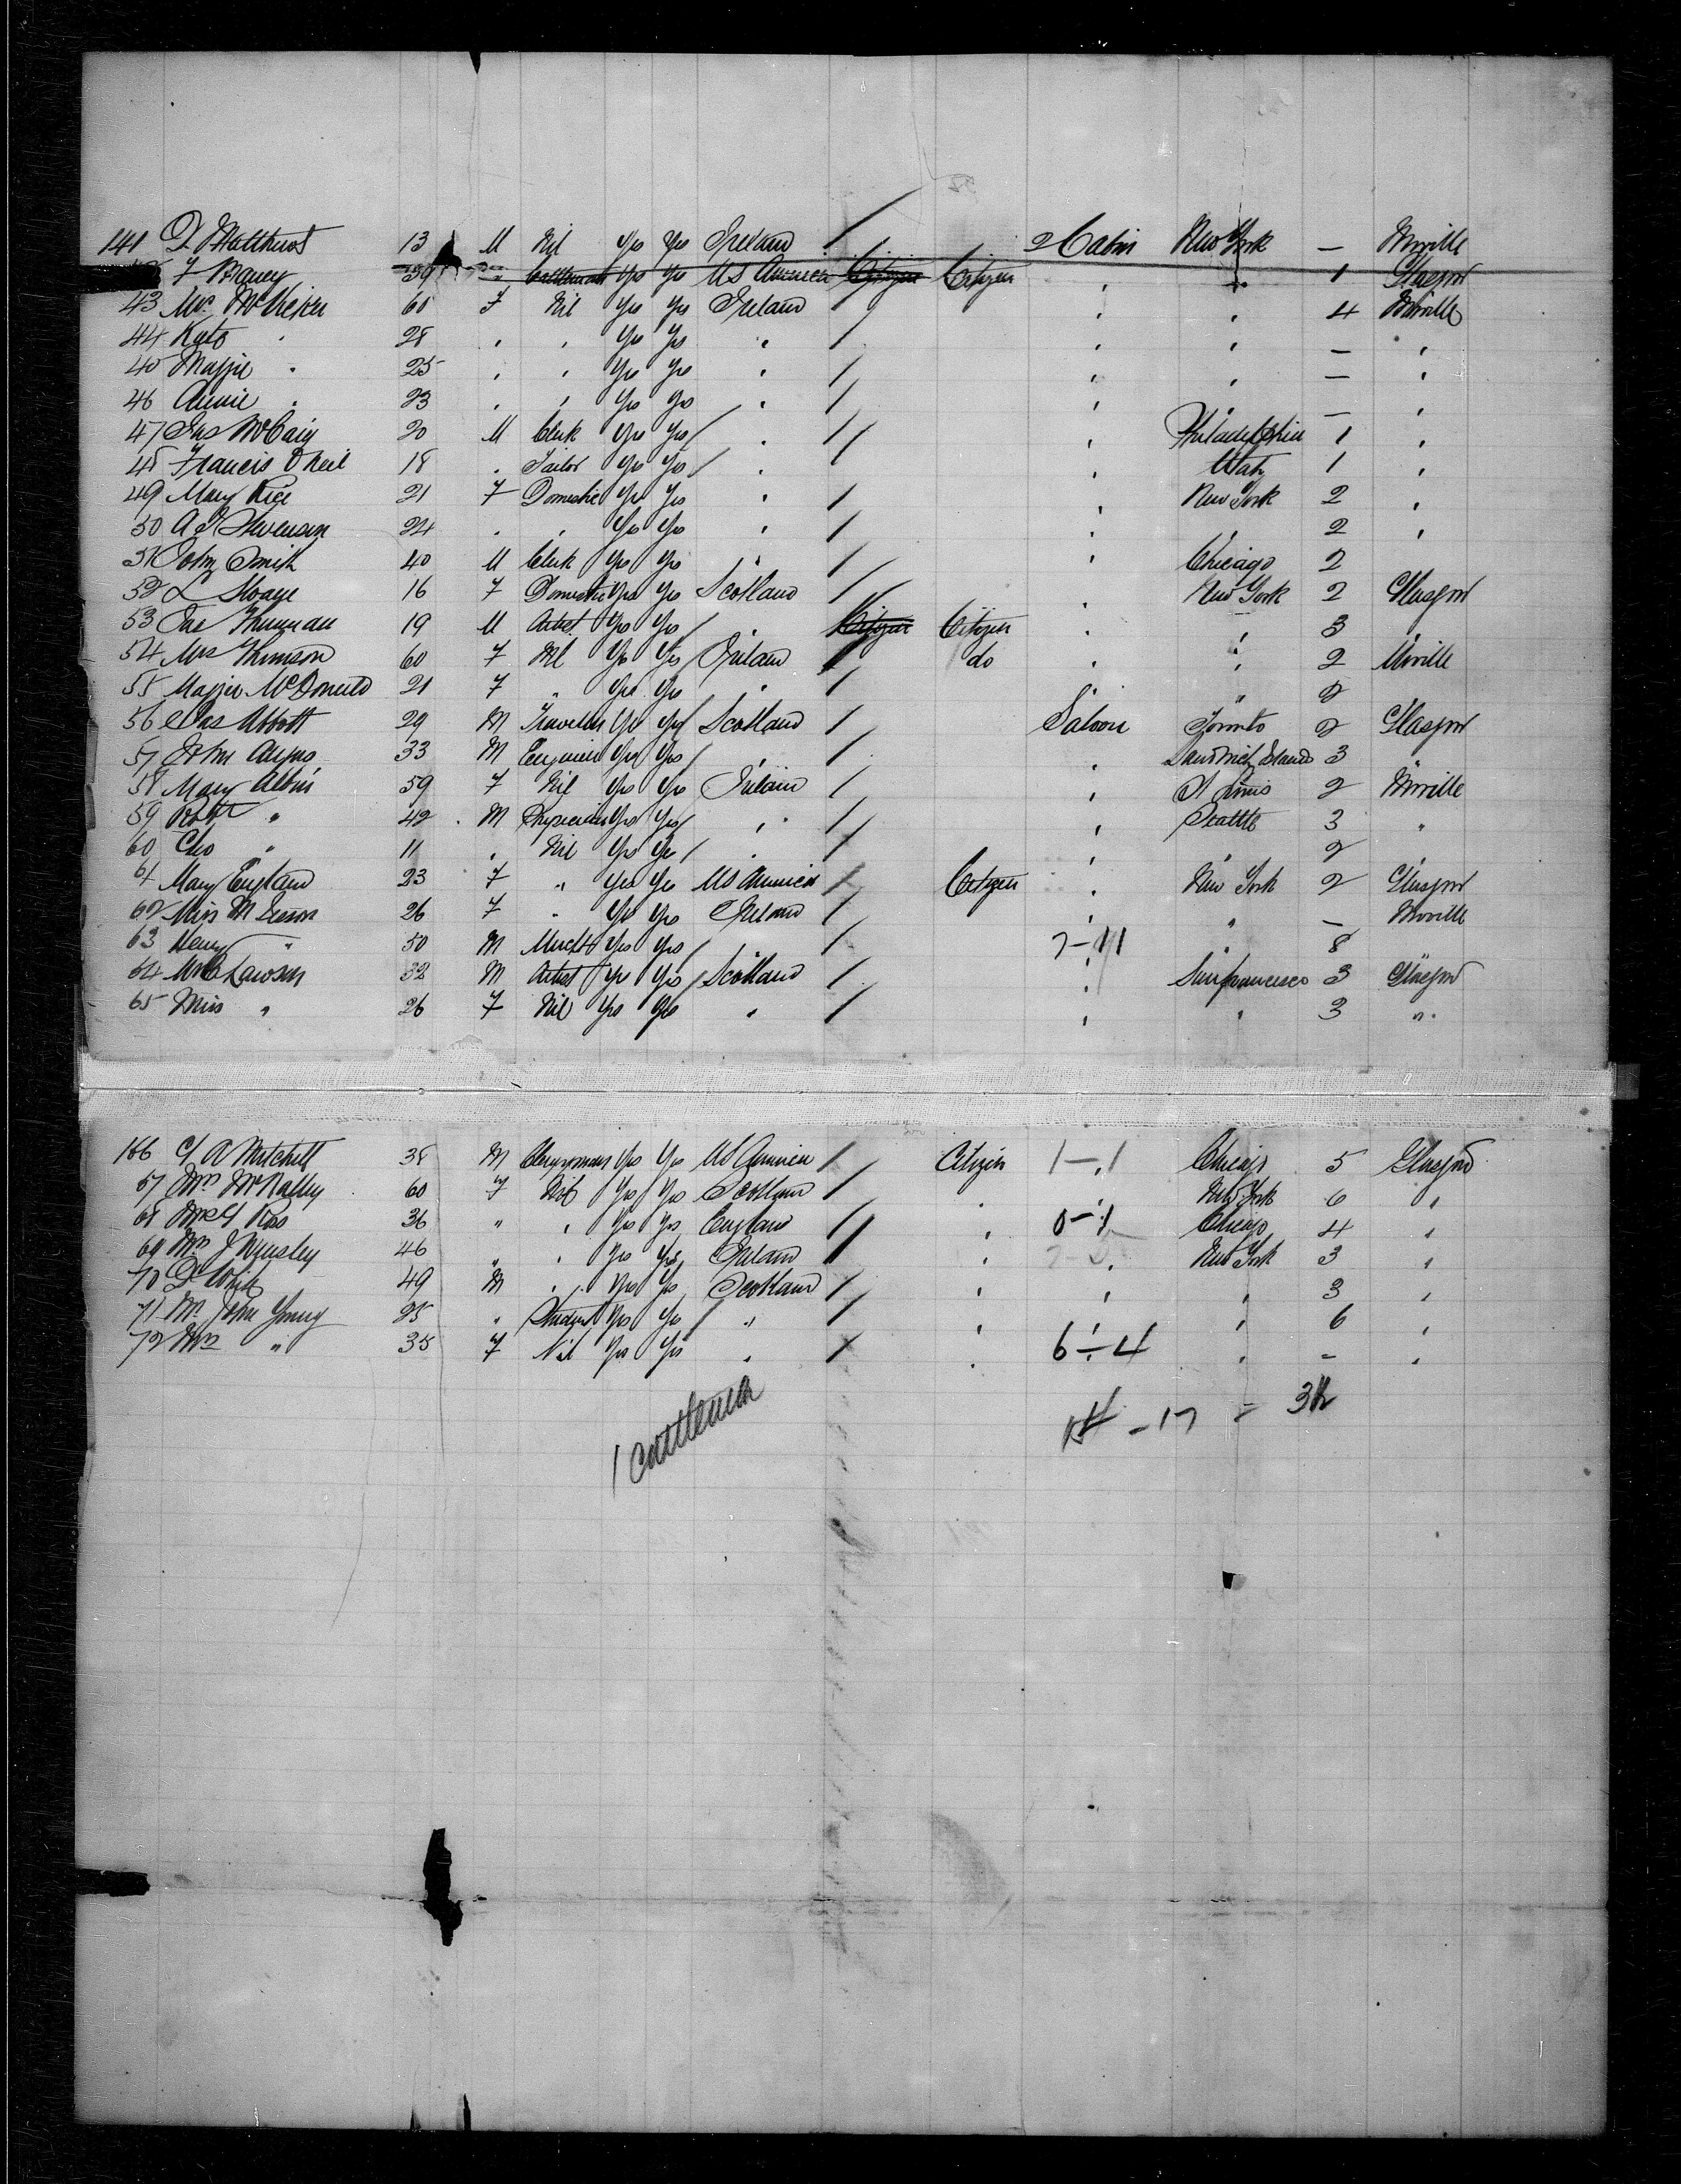 141 D Matthews 13 M Nil Yes Yes Ireland / 2 Cabin New York — Moville
F 39 " Cattleman Yes Yes US America Citizen Citizen " " 1 Glasgow
43 Mrs 60 F Nil Yes Yes Ireland / " " 4 Moville
44 Kate " 28 " " Yes Yes " / " " — "
45 Maggie " 25 " " Yes Yes " / " " — "
46 Annie " 23 " " Yes Yes " / " " — "
47 Jas McCaig 20 M Clerk Yes Yes / " / " Philadelphia 1 "
48 Francis O'Neil 18 " Tailor Yes Yes / " / " Utah 1 "
49 Mary Rice 21 F Domestic Yes Yes " / " New York 2 "
50 A J Stevenson 24 " " Yes Yes " / " " 2 "
51 John Smith 40 M Clerk Yes Yes " / " Chicago 2
52 L Sloage 16 F Domestic Yes Yes Scotland / " New York 2 Glasgow
53 19 M Artist Yes Yes / " Citizen Citizen " " 3 "
54 Mrs Thomson 60 F Nil Yes Yes Ireland / do " " 2 Moville
55 Maggie McDonald 21 F " Yes Yes " / " 2
56 Abbott 29 M Traveller Yes Yes / Scotland / Saloon Toronto 2 Glasgow
57 John Angus 33 M Engineer Yes Yes / " / " Sandwich Islands 3 "
58 Mary 59 F Nil Yes Yes Ireland / " St Louis 2 Moville
59 Robt " 42 M Physician Yes Yes / " / " Seattle 3 "
60 " 11 " Nil Yes Yes / " / " " 2
61 Mary England 23 F " Yes Yes US America / Citizen " New York 2 Glasgow
62 Miss M 26 F " Yes Yes Ireland / " " — Moville
63 Henry " 50 M Mercht Yes Yes / / 7-11 " 8
64 Lawson 32 M Artist Yes Yes / Scotland / " San francisco 3 Glasgow
65 Miss " 26 F Nil Yes Yes " / " " 3 "
166 A Mitchell 38 M Clergyman Yes Yes US America / Citizen 1-1 Chicago 5 Glasgow
67 Mrs McNalley 60 F Nil Yes Yes Scotland / " New York 6 "
68 Ross 36 " " Yes Yes England / " 0-1 Chicago 4 "
69 Mrs J 46 " " Yes Yes Ireland / " " New York 3 "
70 D White 49 M " Yes Yes Scotland / " " " 3 "
71 Mr John Young 25 " Student Yes Yes / " / " " " 6 "
72 Mrs " 35 F Nil Yes Yes " / " 6-4 " - "
- 17 =
1 Cattleman